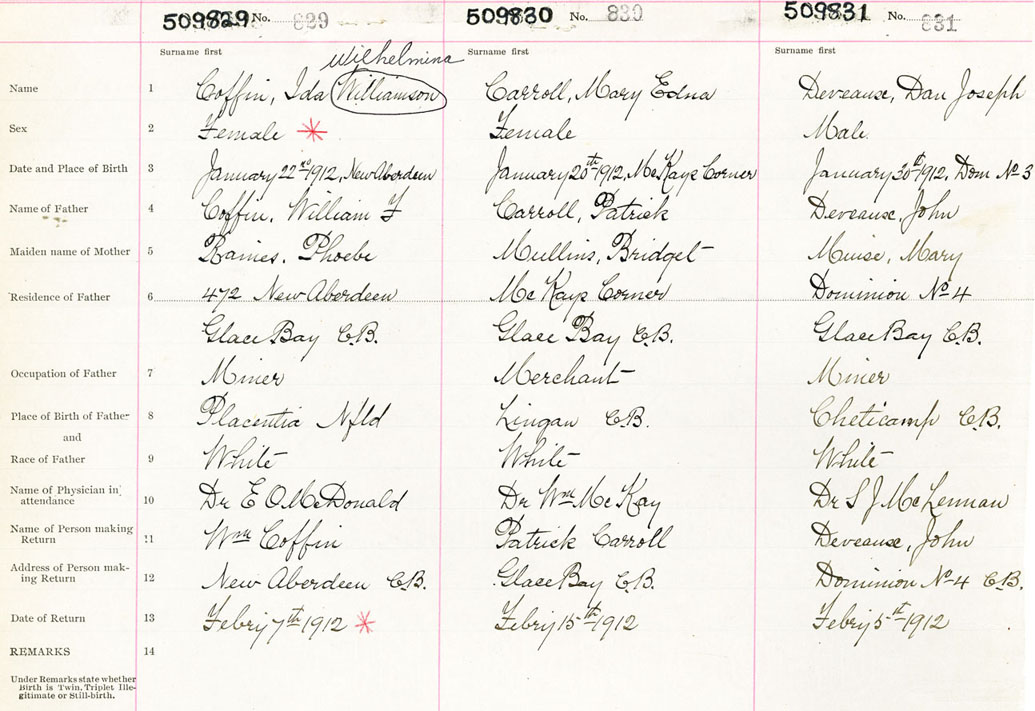 509829 No. 829 509830 No. 830 509831 No. 831
Surname first Surname first Surname first
Wilhelmina
Name 1 Coffin, Ida Williamson Carroll, Mary Edna Deveause, Dan Joseph
Sex 2 Female * Female Male
Date and Place of Birth 3 January 22nd 1912, New Aberdeen January 20th 1912, McKays Corner January 30th 1912, Dom No 3
Name of Father 4 Coffin, William F Carroll, Patrick Deveause, John
Maiden name of Mother 5 Raines, Phoebe Mullins, Bridget Muise, Mary
Residence of Father 6 472 New Aberdeen McKays Corner Dominion No 4
Glace Bay C.B. Glace Bay C.B. Glace Bay C.B.
Occupation of Father 7 Miner Merchant Miner
Place of Birth of Father 8 Placentia Nfld Lingan C.B. Cheticamp C.B.
and
Race of Father 9 White White White
Name of Physician in
attendance 10 Dr E O McDonald Dr Wm McKay Dr S J McLennan
Name of Person making
Return 11 Wm Coffin Patrick Carroll Deveause, John
Address of Person mak-
ing Return 12 New Aberdeen C.B. Glace Bay C.B. Dominion No 4 C.B.
Date of Return 13 Febry 7th 1912 * Febry 15th 1912 Febry 5th 1912
REMARKS 14
Under Remarks state whether
Birth is Twin, Triplet Ille-
gitimate or Still-birth.